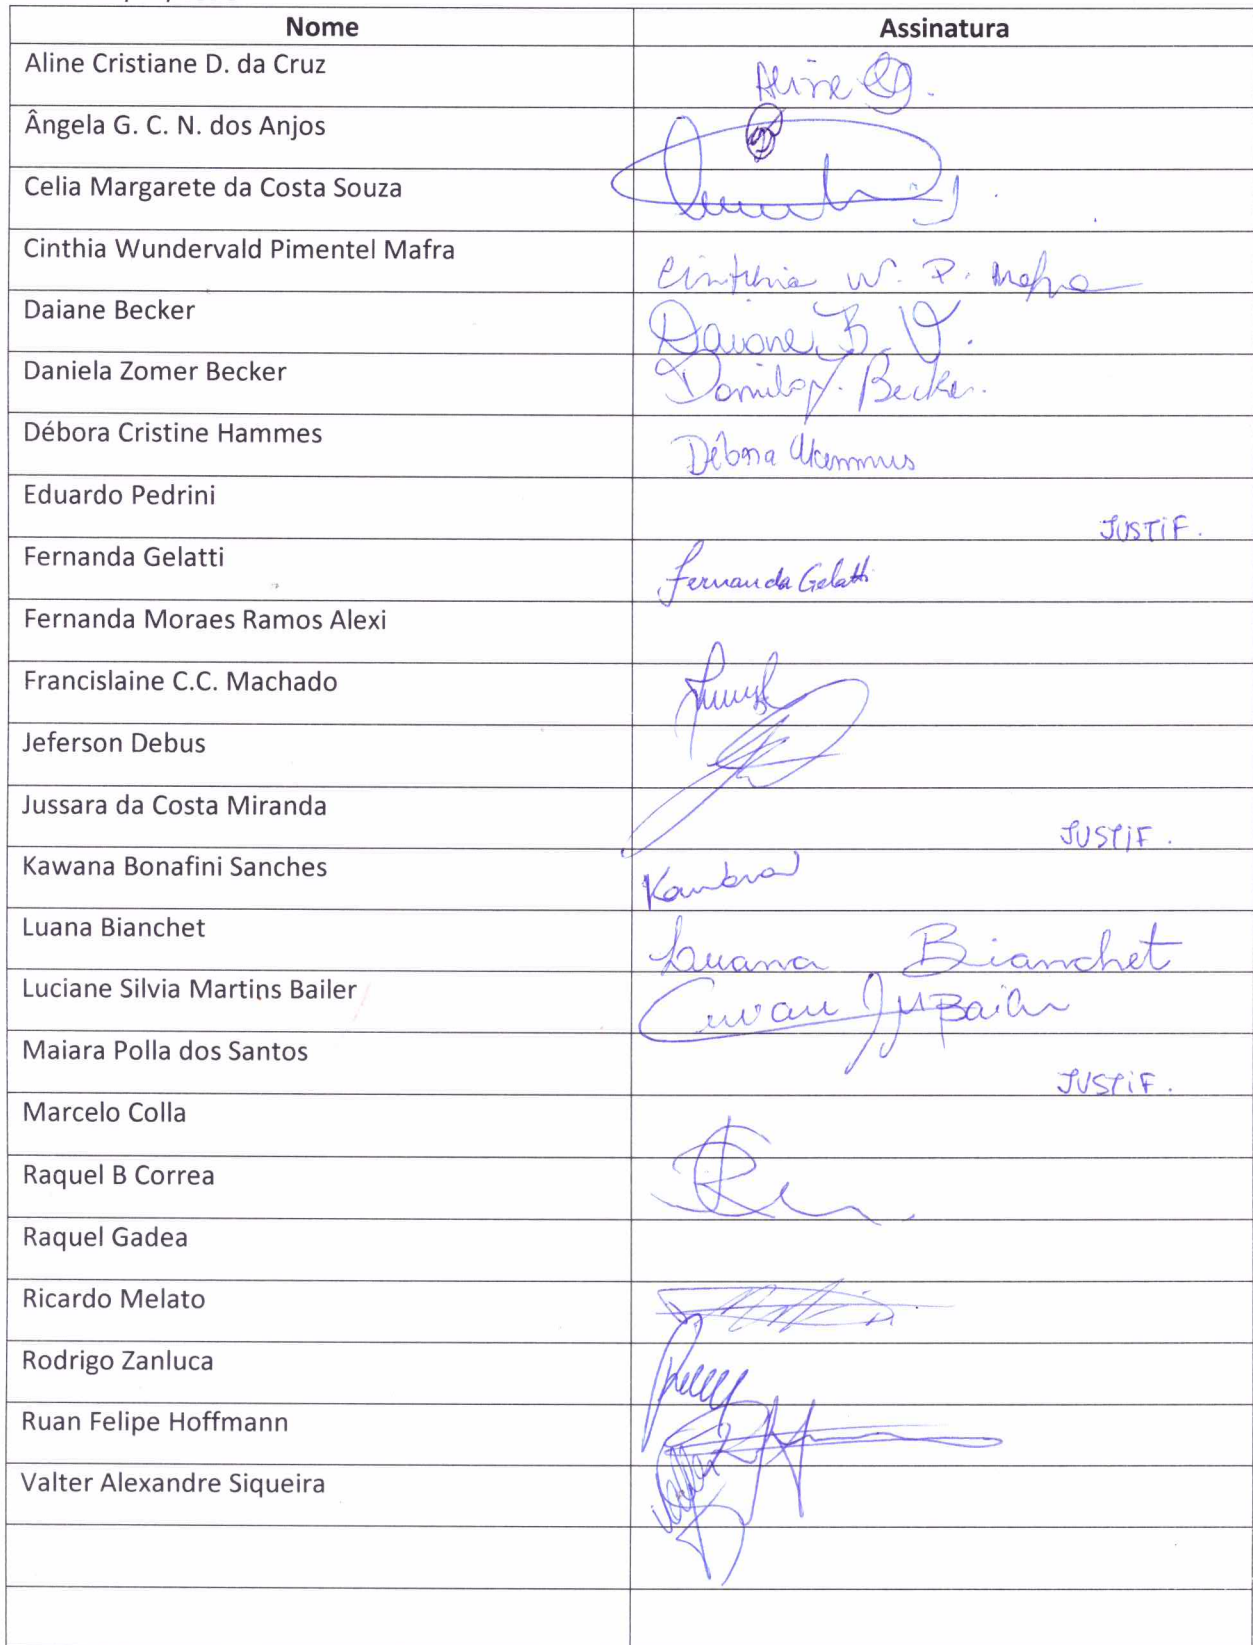 Nome Assinatura
Aline Cristiane D. da Cruz Aline
Ângela G. C. N. dos Anjos
Celia Margarete da Costa Souza
Cinthia Wundervald Pimentel Mafra Cinthia W. P. Mafra
Daiane Becker Daiane B. V.
Daniela Zomer Becker Daniela Z. Becker.
Débora Cristine Hammes Débora Hammes
Eduardo Pedrini JUSTIF.
Fernanda Gelatti Fernanda Gelatti
Fernanda Moraes Ramos Alexi
Francislaine C.C. Machado
Jeferson Debus
Jussara da Costa Miranda JUSTIF.
Kawana Bonafini Sanches
Luana Bianchet Luana Bianchet
Luciane Silvia Martins Bailer Bailer
Maiara Polla dos Santos JUSTIF.
Marcelo Colla
Raquel B Correa
Raquel Gadea
Ricardo Melato
Rodrigo Zanluca
Ruan Felipe Hoffmann
Valter Alexandre Siqueira